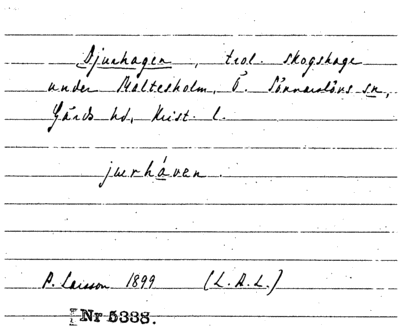 Djurhagen, trol. skogshage
under Maltesholm, Ö. Sönnarslövs sn,
Gärds hd, Krist. l.
juerháven.
P. Larsson 1899 (L.A.L.)
Nr 5338.